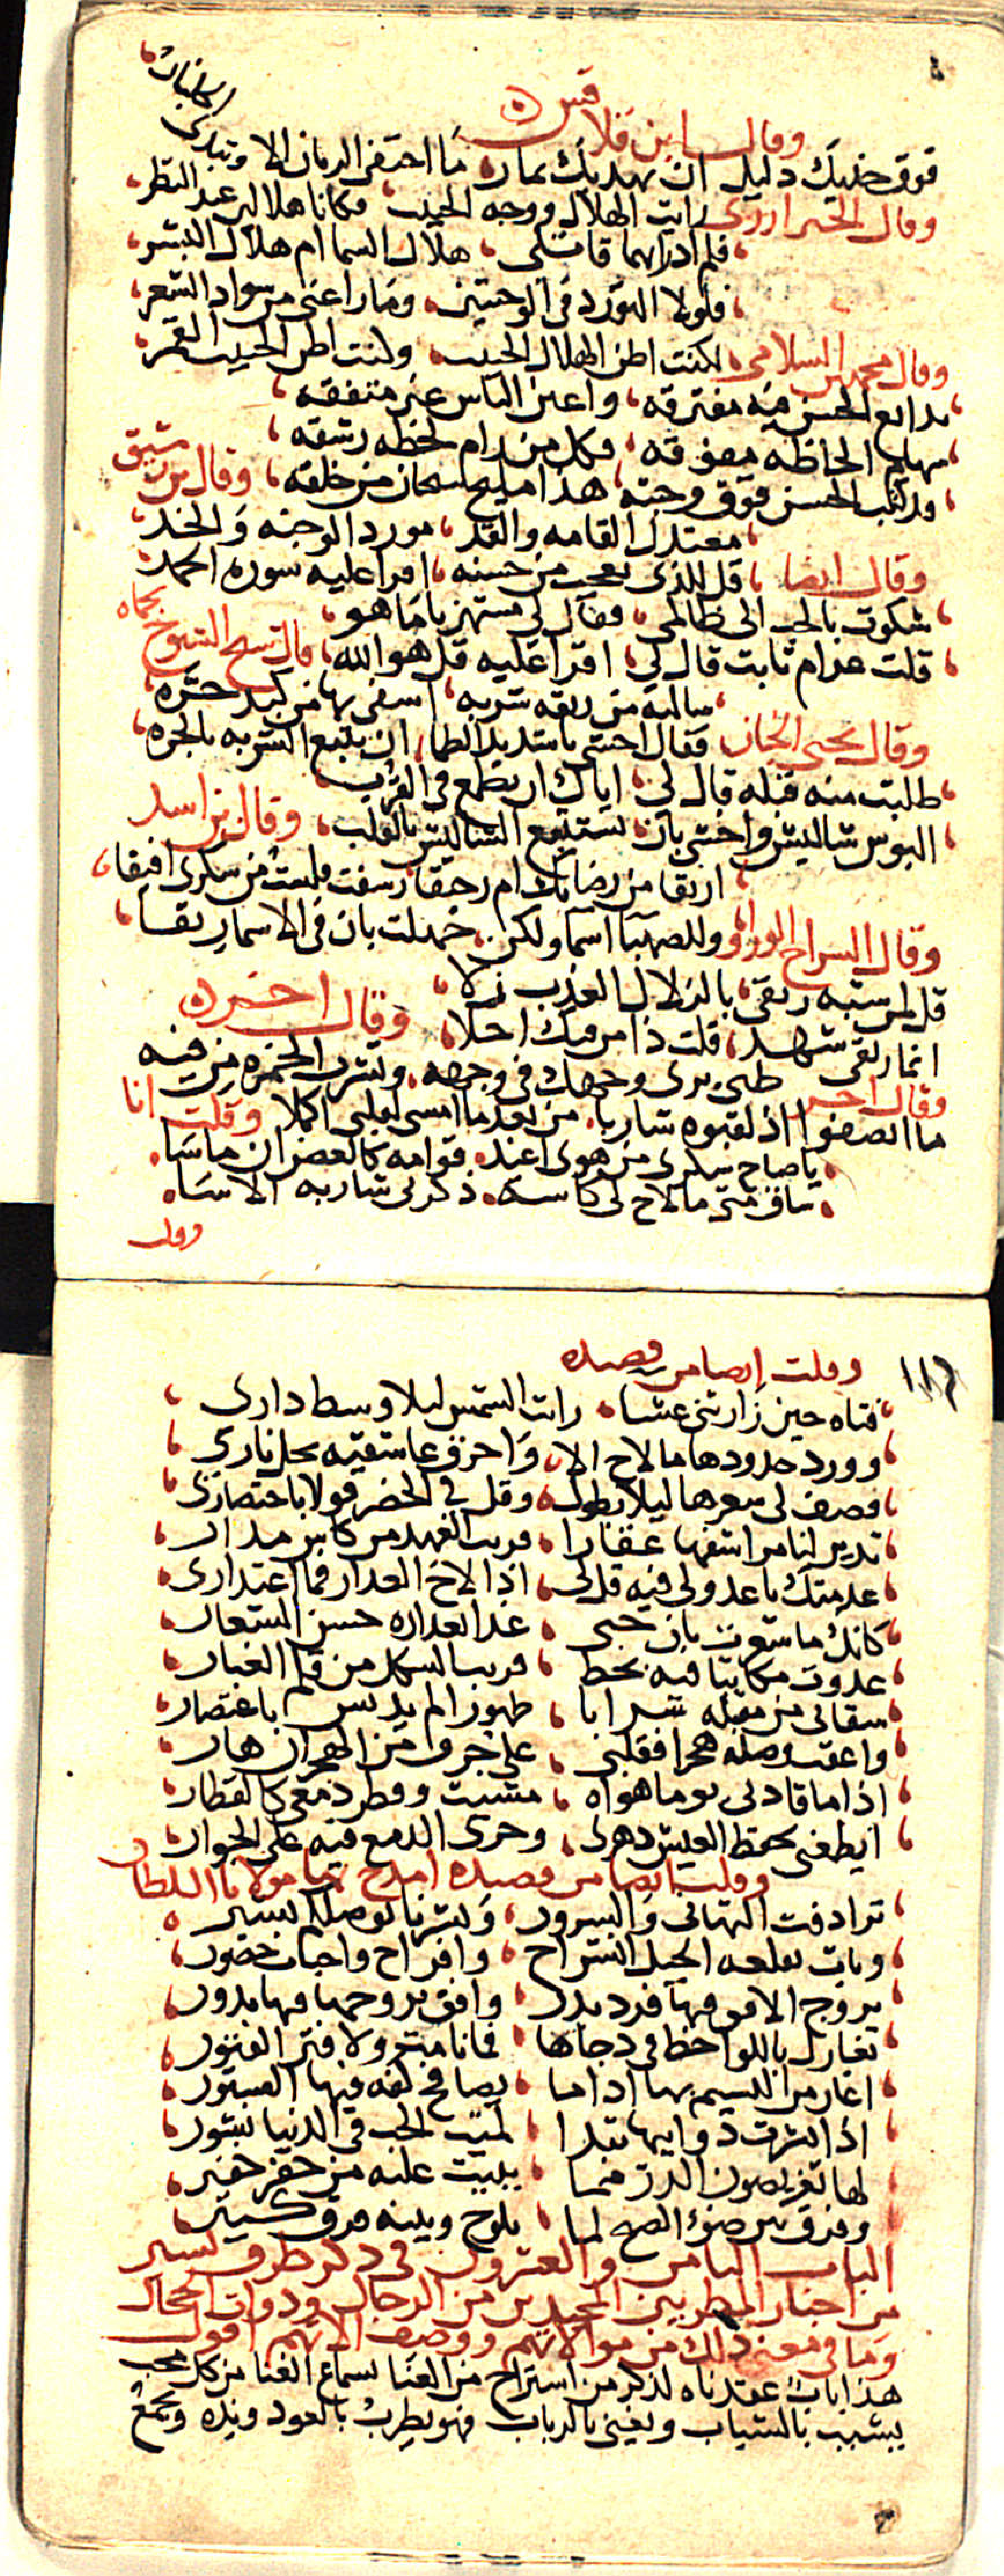 وقال ابن قلاقس
فوق خديك دليل ان نهديك ثمار ما اختفى الرمان الا وتبدى الجلنار
وقال الخبزارزى رايت الهلال ووجه الحبيب فكانا هلالين عند النظر
فلم ادر ايهما قاتلى هلال السما ام هلال البشر
فلولا التورد فى الوجنتين وما راعنى من سواد الشعر
لكنت اظن الهلال الحبيب وكنت اظن الحبيب القمر
وقال محمد السلامى
بدايع الحسن فيه مفترقه واعين الناس غير متفقه
سهام الحاظه مفوقه فكل من رام لحظه رشقه
قد كتب الحسن فوق وجنته هذا مليح سبحان من خلقه وقال بن رشيق
معتدل القامه والقد مورد الوجنه والخد
قل للذى يعجب من حسنه اقرا عليه سورة الحمد
وقال ايضا
شكوت بالحب الى ظالمى فقال لى مستهزيا ما هو
قلت غرام ثابت قال لى اقرا عليه قل هو الله قال شيخ الشيوخ بحماه
سالته من ريقه شربه اشفى بها من كبد حره
فقال اخشى يا شديد الظما ان يتبع الشربه بالجره
وقال يحيى الخباز
طلبت منه قبله قال لى اياك ان تطمع فى القرب
البوس شاليش واخشى بان تستتبع الشاليش بالقلب وقال بن اسد
اريقا من رضابك ام رحيقا رشفت فلست من سكرى افيقا
وللصهبا اسما ولكن جهلت بان فى الاسما ريقا
وقال السراج الوراق
قل لمن شبه ريقى بالزلال العذب زلا
انما ريقى شهد قلت ذا من فيك احلا وقال اخر
ظبى يرى وجهك فى وجهه وتشرب الخمره من فيه
وقال اخر
ما انصفوا اذ لقبوه شاربا من بعد ما امسى لقلبى اكلا وقلت انا
يا صاح سكرى من هوى اغيد قوامه كالغصن ان ماسا
ساق متى ما لاح لى كاسه ذكرنى شاربه الاسا
وقلت
١١٦
وقلت ايضا من قصيده
فتاه حين زارتنى عشا رات الشمس ليلا وسط دارى
وورد خدودها ما لاح الا واحرق عاشقيه بجل نارى
فصف لى شعرها ليلا بطول وقل فى الخصر قولا باختصارى
تدير لنا مراشفها عقارا قريب العهد من كاس مدار
عدمتك يا عذولى فيه قل لى اذا لاح العذار فما اعتذارى
كانك ما شعرت بان حبى غدا لعذاره حسن الشعار
غدوت مكاتبا فيه بخط قريب الشكل من قلم الغبار
سقانى من مقبله شرابا طهورا لم يدنس باعتصار
واعقب وصله هجرا فقلبى على جرف من الهجران هار
اذا ما قادنى يوما هواه مشيت وقطر دمعى كالقطار
ايطفى بحفظ العيش دهرى وجرى الدمع فيه على الجوار
وقلت ايضا من قصيده امدح بها مولانا السلطان
ترادفت التهانى والسرور وبشرنا بوصلكم بشير
وبات بقلعه الجبل انشراح وافراح واحباب حضور
بروج الافق فيها فرد بدر وافق بروجها فيها بدور
تغازل باللواحظ فى دجاها فما نامت ولا فتر الفتور
اغار من النسيم بها اذا ما يصافح كفه فيها العبير
اذا نشرت ذوايبها تبدا لميت الحب فى الدنيا نشور
لها ثغر يصون الدر مما يبيت عليه من خفر خفير
وفرق من ضوء الصبح لما يلوح وبينه فرق كبير
الباب الثامن والعشرون فى ذكر طرف يسير
من اخبار المطربين المجيدين من الرجال وذوات الحجال
وما فى معنى ذلك من موالاتهم ووصف الاتهم اقول
هذا باب عقدناه لذكر من استراح من العنا لسماع الغنا من كل محب
يشبب بالشباب ويغنى بالرباب فهو يطرب بالعود ونده ويجمع